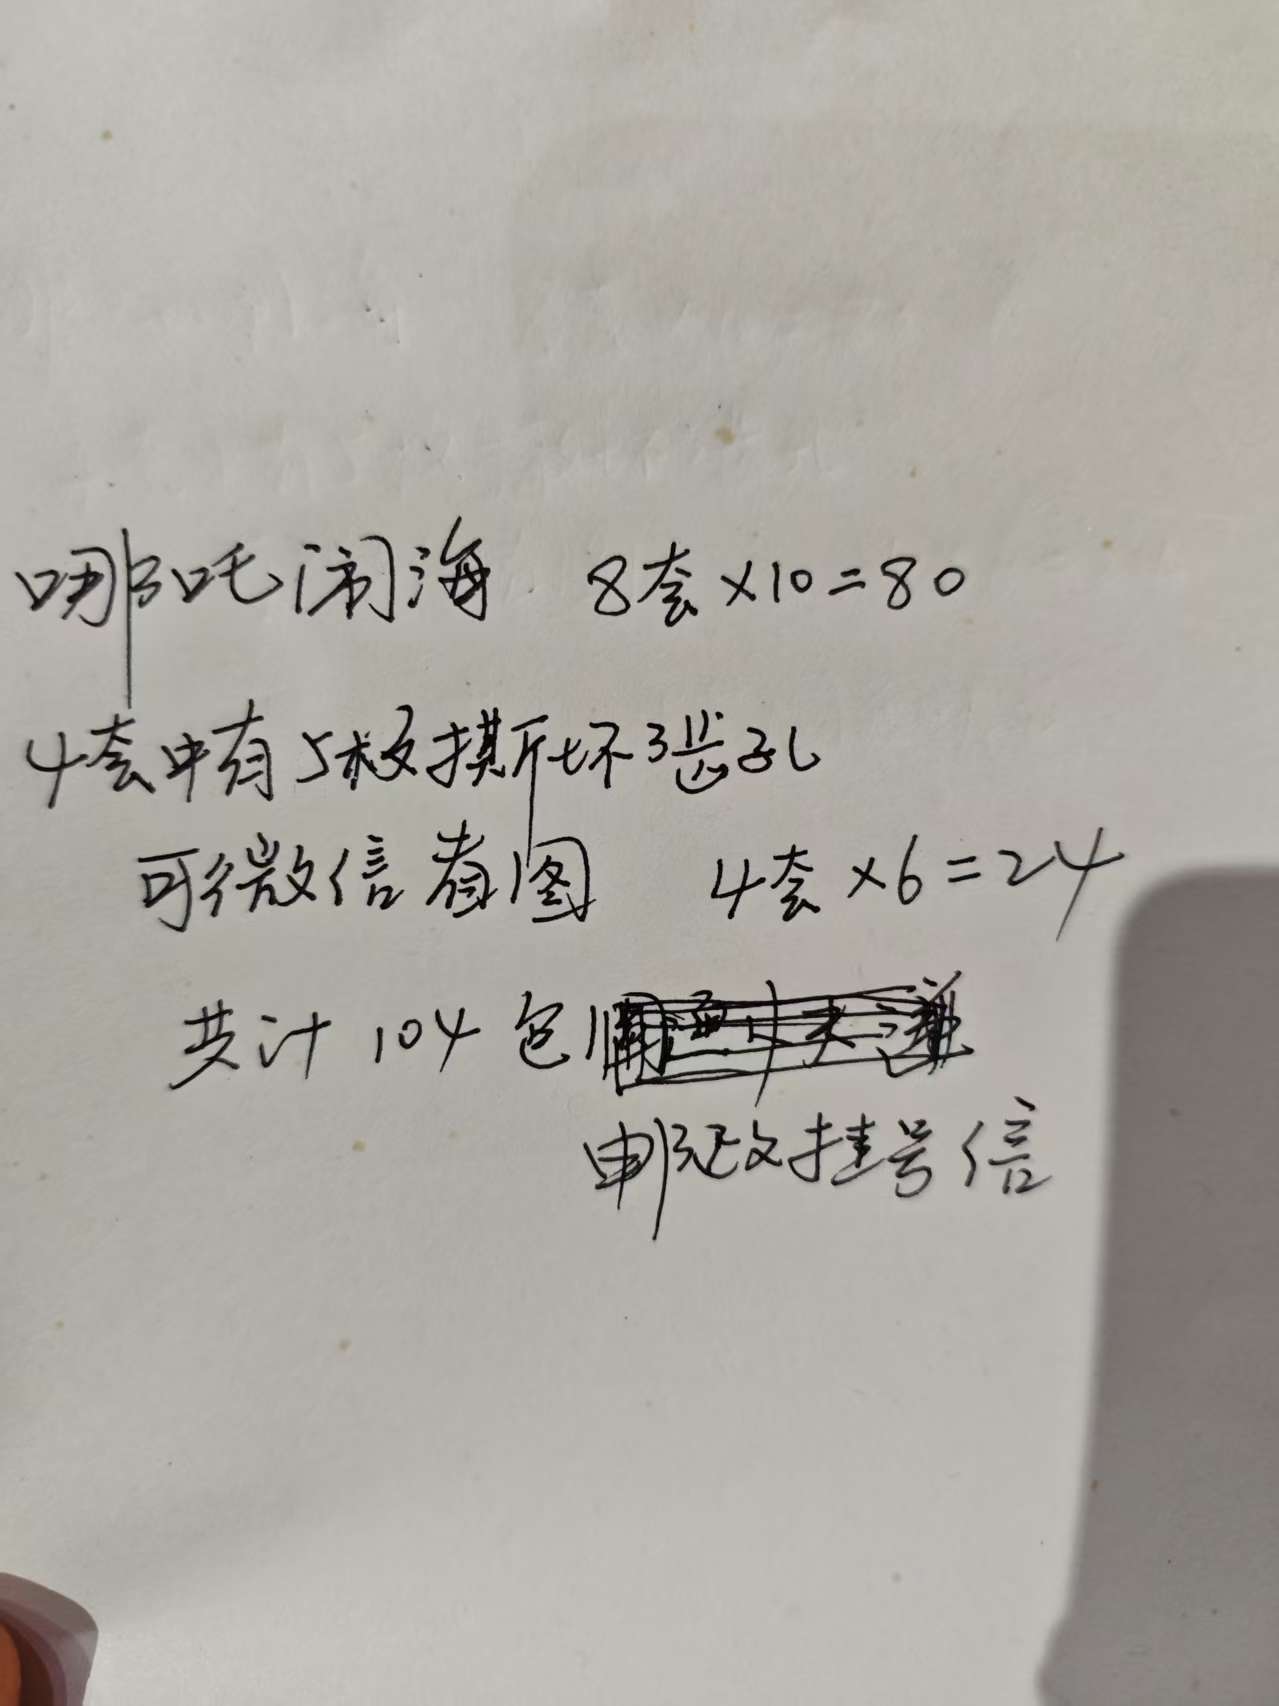 哪吒闹海 8套×10=80
4套中有5枚撕坏了齿孔
可微信看图 4套×6=24
共计104包
邮政挂号信